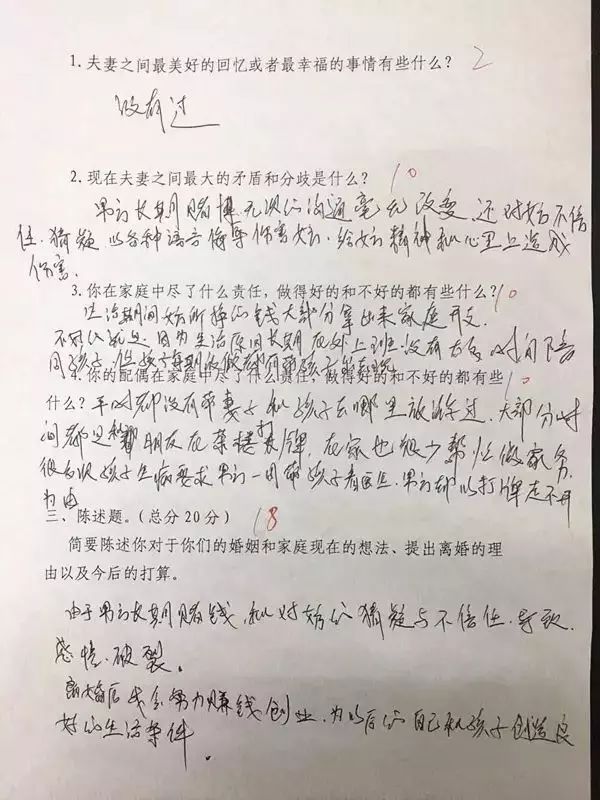 1.夫妻之间最美好的回忆或者最幸福的事情有些什么? 2
没有过
2.现在夫妻之间最大的矛盾和分歧是什么? 10
男方长期赌博无数的沟通毫无改变,还对女方不信
任.猜疑.以各种语言侮辱伤害女方.给女方精神和心里上造成
伤害.
3.你在家庭中尽了什么责任,做得好的和不好的都有些什么? 10
生活期间女方所挣的钱大部分拿出来家庭开支.
不好的就是因为生活原因长期在外上班没有太多时间陪
同孩子,但
4.你的配偶在家庭中尽了什么责任,做得好的和不好的都有些 10
什么?平时都没有带妻子和孩子去哪里放松过.大部分时
间都是和朋友在茶楼打牌,在家也很少帮忙做家务.
孩子生病要求男方一同带孩子看医生.男方却以打牌走不开
为由
三、陈述题。(总分20分) 18
简要陈述你对于你们的婚姻和家庭现在的想法、提出离婚的理
由以及今后的打算。
由于男方长期赌钱,和对女方的猜疑与不信任.导致.
感情.破裂。
离婚后我会努力赚钱创业.为以后的自己和孩子创造良
好的生活条件.